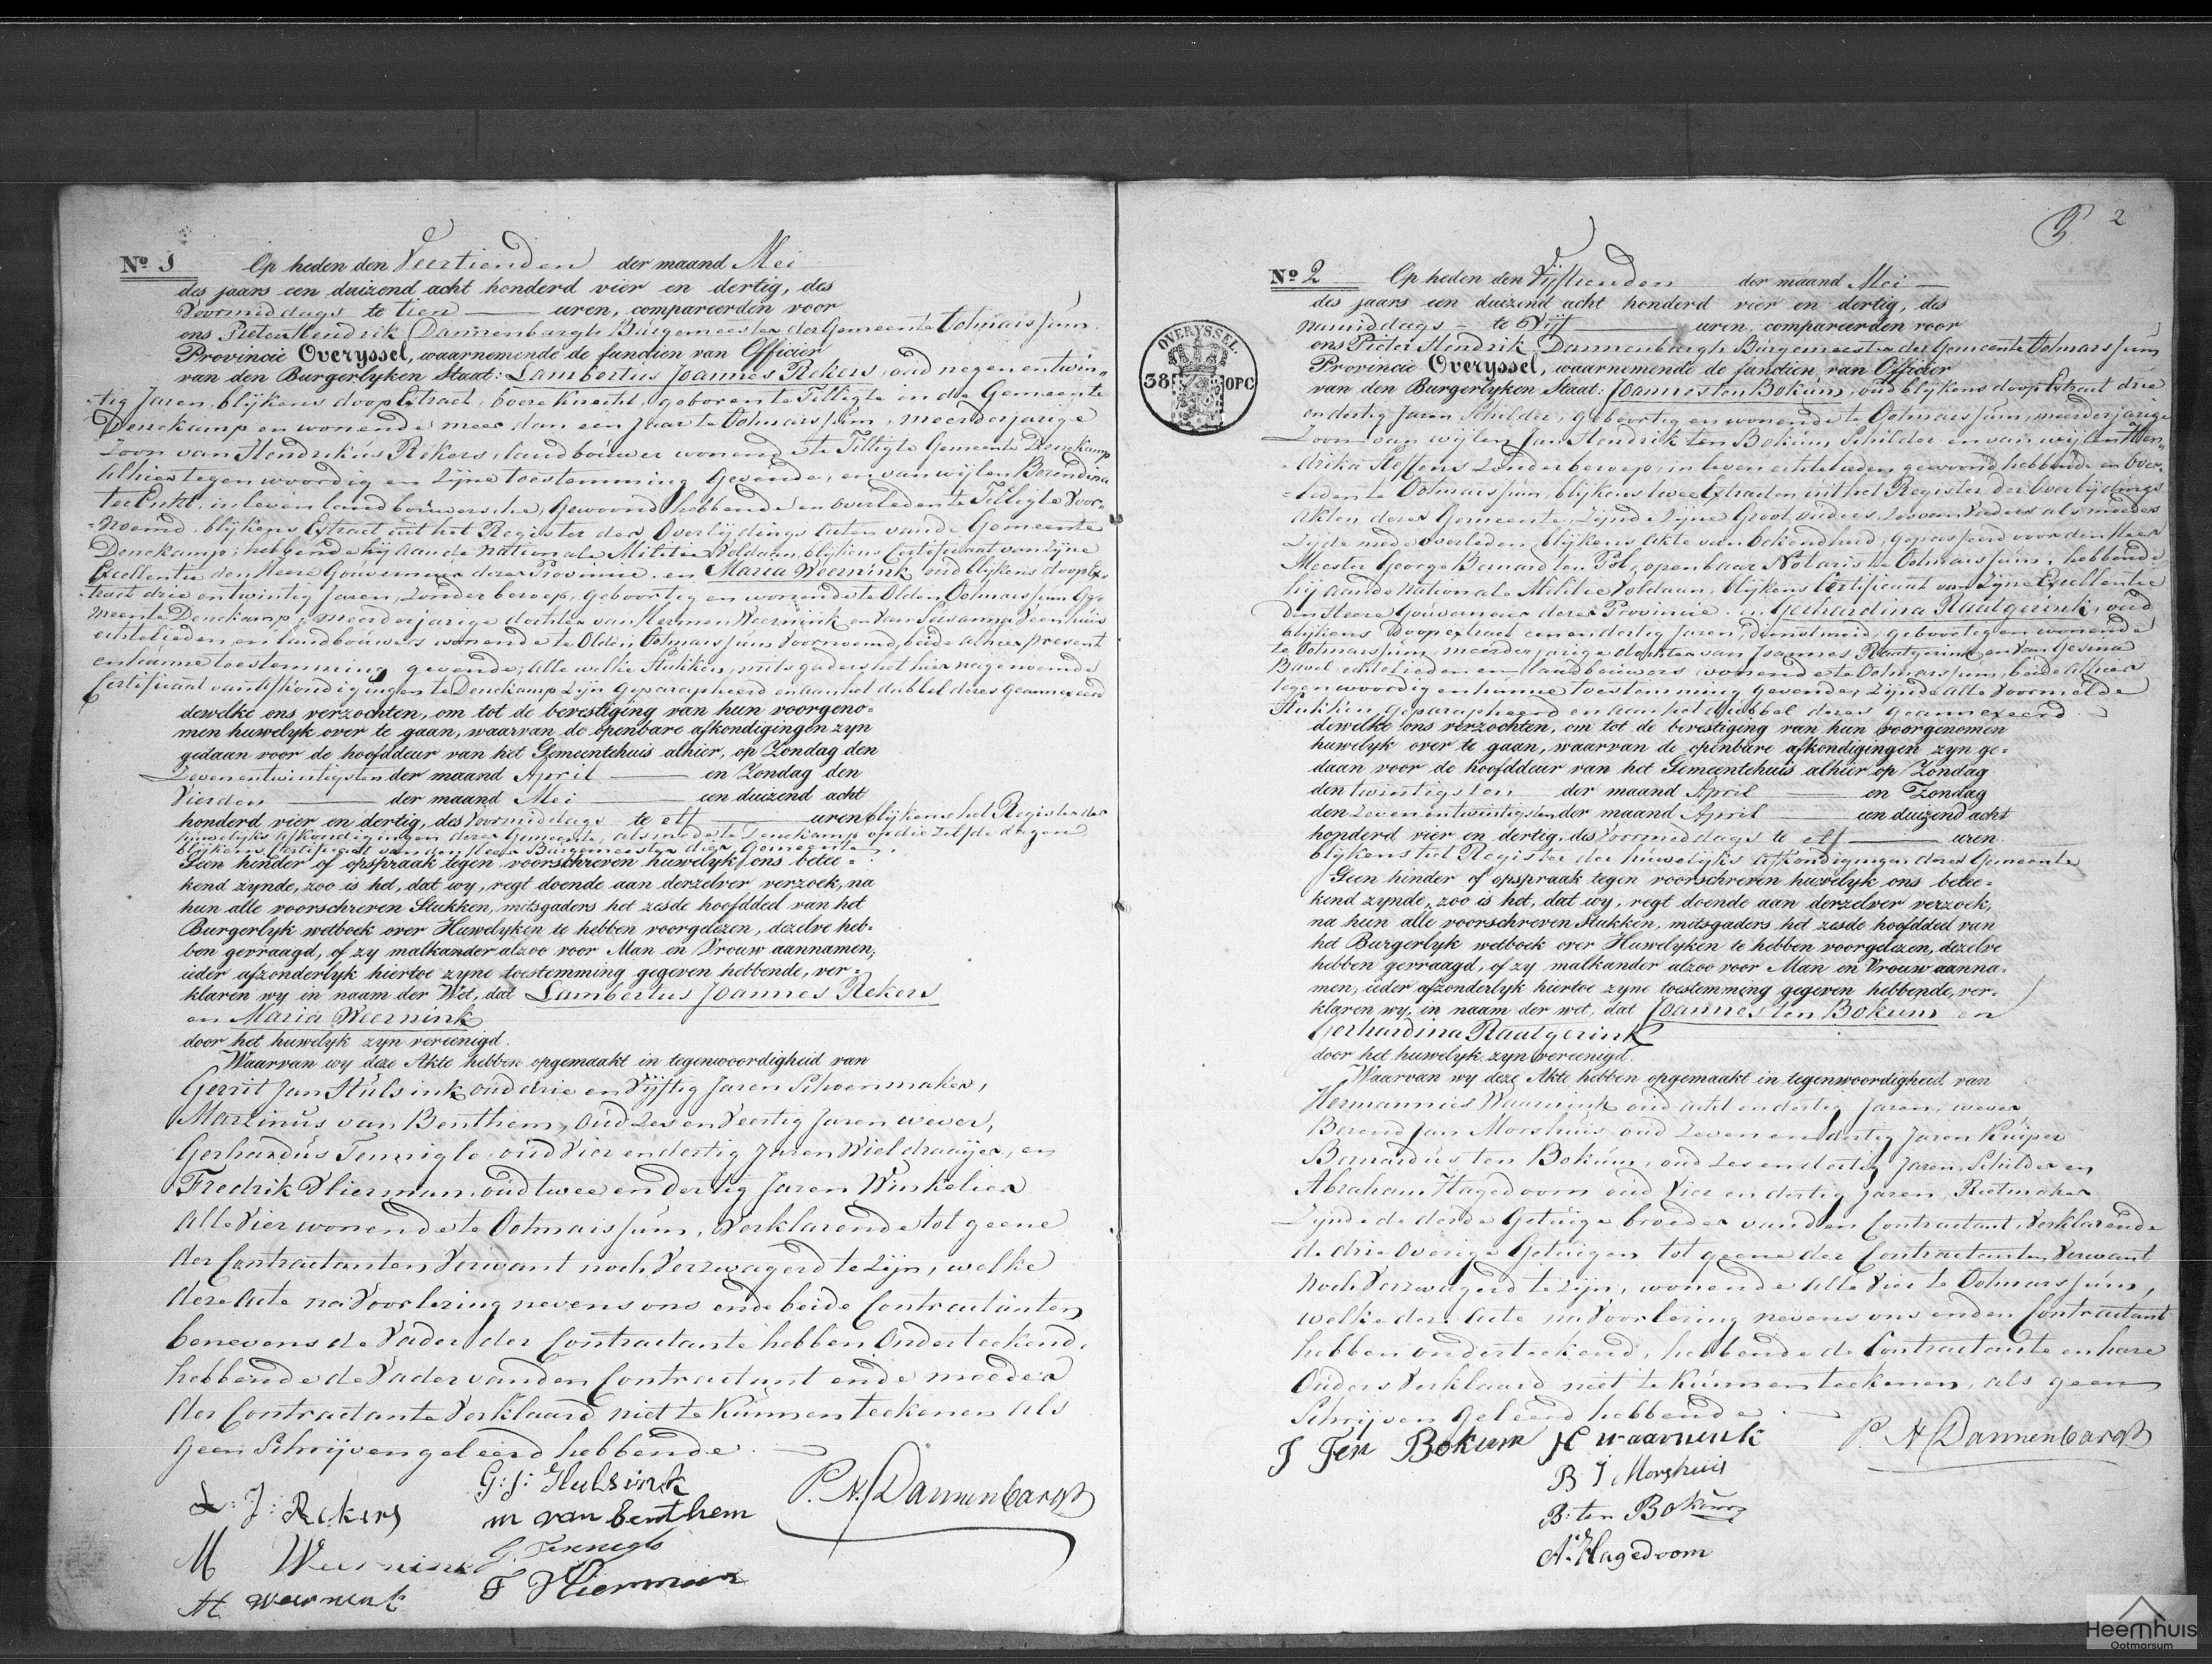 No. 1 Op heden den Veertienden der maand Mei
des jaars een duizend acht honderd vier en dertig, des
Voormiddags te tien uren, compareerden voor
ons Pieter Hendrik Dannenbargh Burgemeester der Gemeente Ootmarssum
Provincie Overyssel, waarnemende de functien van Officier
van den Burgerlyken Staat: Lambertus Joannes Rekers, oud negen en twin-
-tig Jaren, blijkens doop Extract, boere Knecht, geboren te Tilligte in de Gemeente
Denekamp en wonende meer dan een Jaar te Ootmarssum, meerderjarige
Zoon van Hendrikus Rekers, landbouwer wonende te Tilligte Gemeente Denekamp
alhier tegenwoordig en zijne toestemming gevende, en van wijlen Berendina
in leven landbouwersche, gewoond hebbende en overleden te Tilligte voor-
-noemd, blijkens Extract uit het Register der Overlijdings acten van de Gemeente
Denekamp; hebbende hij aan de Nationale Militie voldaan, blijkens Certificaat van Zijne
Excellentie den Heere Gouverneur dezer Provincie. en Maria Weernink oud blijkens doop Ex-
-tract drie en twintig Jaren, zonder beroep, geboortig en wonende te Olden Ootmarssum Ge-
meente Denekamp; meerderjarige dochter van Hermen Weernink en van Susanna Veenhuis
echtelieden en landbouwers wonende te Olden Ootmarssum voornoemd, beide alhier present
en hunne toestemming gevende; alle welke Stukken, mitsgaders het hier nagenoemde
Certificaat van afkondigingen te Denekamp zijn geparapheerd en aan het dubbel dezes geannexeerd
dewelke ons verzochten, om tot de bevestiging van hun voorgeno-
men huwelyk over te gaan, waarvan de openbare afkondigingen zyn
gedaan voor de hoofddeur van het Gemeentehuis alhier, op Zondag den
Zevenentwintigsten der maand April en Zondag den
Vierden der maand Mei een duizend acht
honderd vier en dertig, des Voormiddags te elf uren blijkens het Register der
huwelijks afkondigingen dezer Gemeente, alsmede te Denekamp op die zelfde dagen
blijkens Certificaat van den Heere Burgemeester dier Gemeente
Geen hinder of opspraak tegen voorschreven huwelyk ons betee-
kend zynde, zoo is het, dat wy, regt doende aan derzelver verzoek, na
hun alle voorschreven Stukken, mitsgaders het zesde hoofddeel van het
Burgerlyk wetboek over Huwelyken te hebben voorgelezen, dezelve heb-
ben gevraagd, of zy malkander alzoo voor Man en Vrouw aannamen,
ieder afzonderlyk hiertoe zyne toestemming gegeven hebbende, ver-
klaren wy in naam der Wet, dat Lambertus Joannes Rekers
en Maria Weernink
door het huwelyk zyn vereenigd.
Waarvan wy deze Akte hebben opgemaakt in tegenwoordigheid van
Gerrit Jan Hulsink oud drie en Vijftig Jaren Schoenmaker,
Martinus van Benthem, oud Zes en Veertig Jaren wever,
Gerhardus Tenniglo oud Vier en dertig Jaren Wieldraaijer, en
Fredrik Vlierman, oud twee en dertig Jaren Winkelier
Alle Vier wonende te Ootmarssum, Verklarende tot geene
der Contractanten Verwant noch Verzwagerd te zijn, welke
deze Acte na Voorlezing nevens ons en de beide Contractanten
benevens de Vader der Contractante hebben Onderteekend,
hebbende de Vader van den Contractant en de moeder
der Contractante Verklaard niet te kunnen teekenen als
geen Schrijven geleerd hebbende.
L: J: Rekers G: J: Hulsink P. H. Dannenbargh
m van benthem
M Weernink G. Tenniglo
H Weernink F Vlierman
2
OVERYSSEL.
38 OPC
No. 2 Op heden den Vijftienden der maand Mei
des jaars een duizend acht honderd vier en dertig, des
namiddags te Vijf uren, compareerden voor
ons Pieter Hendrik Dannenbargh Burgemeester der Gemeente Ootmarssum
Provincie Overyssel, waarnemende de functien van Officier
van den Burgerlyken Staat: Joannes ten Bokum, oud blijkens doop Extract drie
en dertig Jaren Schilder, geboortig en wonende te Ootmarssum, meerderjarige
Zoon van wijlen Jan Hendrik ten Bokum, Schilder en van wijlen Hen-
-drika Steffens zonder beroep, in leven echtelieden gewoond hebbende en over-
-leden te Ootmarssum, blijkens twee Extracten uit het Register der Overlijdings
Akten dezer Gemeente, zijnde zijne Groot ouders, zoo van Vaders als moeders
zijde mede overleden, blijkens Akte van bekendheid, gepasseerd voor den Heer
Meester George Bernard ten Pol, openbaar Notaris te Ootmarssum, hebbende
hij aan de Nationale Militie Voldaan, blijkens Certificaat van Zijne Excellentie
den Heere Gouverneur dezer Provincie. en Gerhardina Raatgerink, oud
blijkens Doopextract een en dertig Jaren, dienstmeid, geboortig en wonende
te Ootmarssum, meerderjarige dochter van Joannes Raatgerink en van Gesina
Bavel echtelieden en landbouwers wonende te Ootmarssum, beide alhier
tegenwoordig en hunne toestemming gevende, zijnde alle Voormelde
Stukken geparapheerd en aan het dubbel dezes geannexeerd
dewelke ons verzochten, om tot de bevestiging van hun voorgenomen
huwelyk over te gaan, waarvan de openbare afkondigingen zyn ge-
daan voor de hoofddeur van het Gemeentehuis alhier op Zondag
den twintigsten der maand April en Zondag
den Zevenentwintigsten der maand April een duizend acht
honderd vier en dertig, des Voormiddags te elf uren.
blijkens het Register der huwelijks afkondigingen dezer Gemeente
Geen hinder of opspraak tegen voorschreven huwelyk ons betee-
kend zynde, zoo is het, dat wy, regt doende aan derzelver verzoek,
na hun alle voorschreven Stukken, mitsgaders het zesde hoofddeel van
het Burgerlyk wetboek over Huwelyken te hebben voorgelezen, dezelve
hebben gevraagd, of zy malkander alzoo voor Man en Vrouw aanna-
men, ieder afzonderlyk hiertoe zyne toestemming gegeven hebbende, ver-
klaren wy, in naam der wet, dat Joannes ten Bokum en
Gerhardina Raatgerink
door het huwelyk zyn vereenigd.
Waarvan wy deze Akte hebben opgemaakt in tegenwoordigheid van
Hermannus Waarnink oud acht en dertig Jaren, wever
Berend Jan Morshuis oud Zeven en dertig Jaren Kuiper
Bernardus ten Bokum, oud Zes en dertig Jaren, Schilder en
Abraham Hagedoorn oud Vier en dertig Jaren, Rietmaker
Zijnde de derde Getuige broeder van den Contractant, Verklarende
de drie overige Getuigen tot geene der Contractanten Verwant
noch Verzwagerd te zijn, wonende alle Vier te Ootmarssum,
welke deze Acte na Voorlezing nevens ons en den Contractant
hebben onderteekend, hebbende de Contractante en hare
Ouders Verklaard niet te kunnen teekenen, als geen
Schrijven geleerd hebbende.
J Ten Bokum H waarnink P. H Dannenbargh
B J Morshuis
B: ten Bokum
A. Hagedoorn
Heemhuis
Ootmarsum